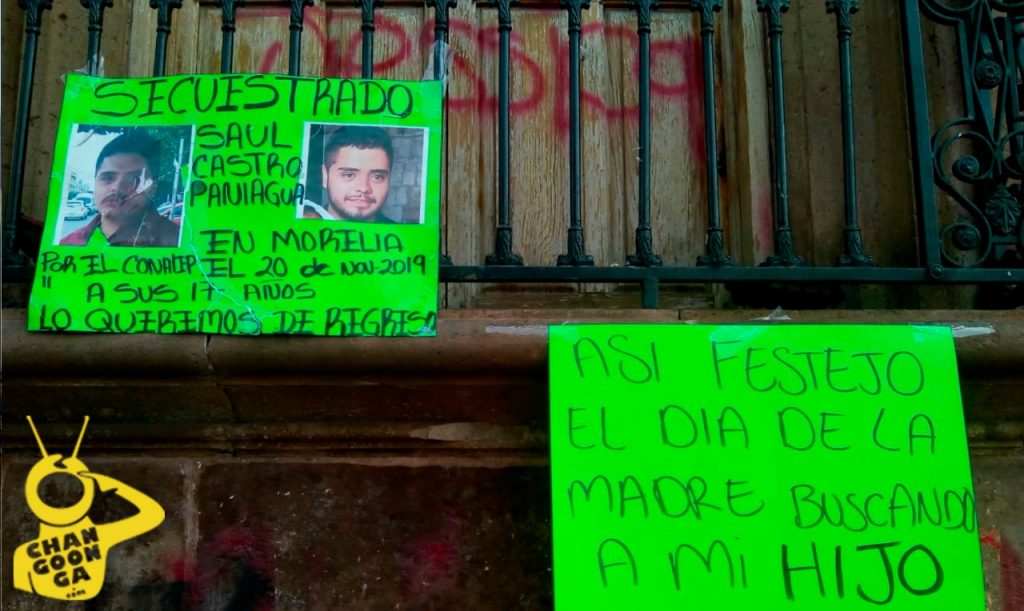 SECUESTRADO
SAUL
CASTRO
PANIAGUA
EN MORELIA
POR EL CONALEP EL 20 de NOV-2019
" A SUS 17 AÑOS
LO QUEREMOS DE REGRESO
ASI FESTEJO
EL DIA DE LA
MADRE BUSCANDO
A Mi HIJO
CHAN
GOON
GA
.com